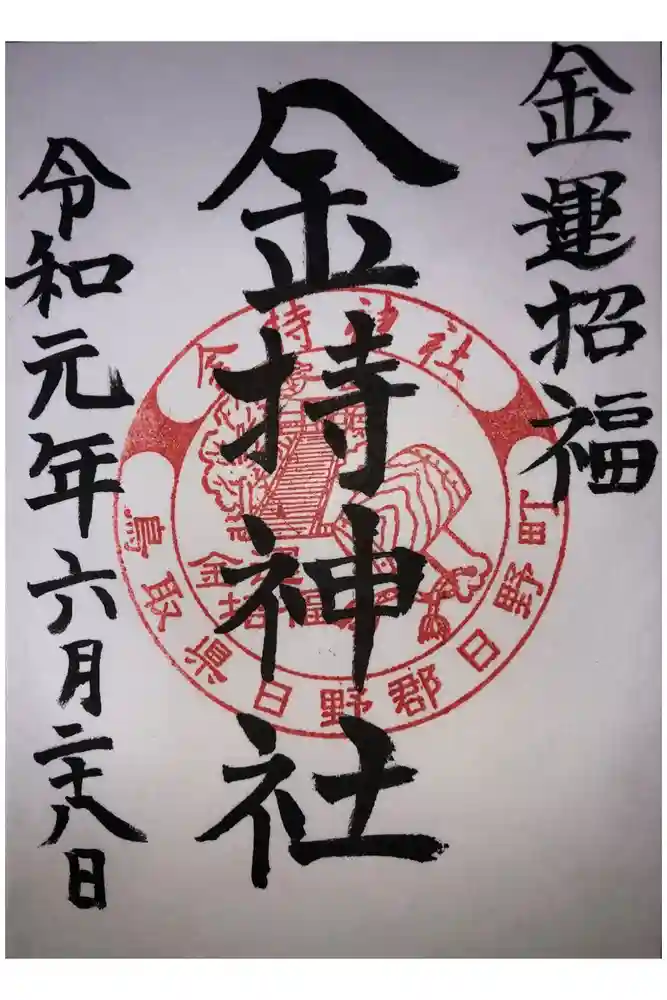 金運招福
金持神社
令和元年六月二十八日
金持神社
金運
招福
鳥取県日野郡日野町